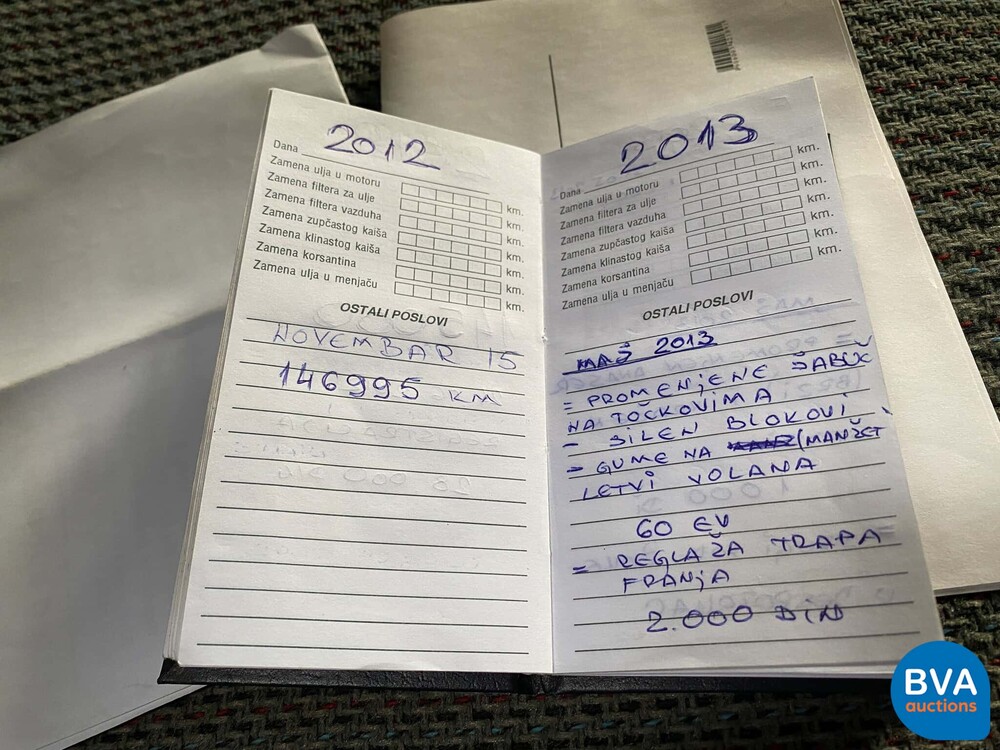 Dana 2012
Zamena ulja u motoru km.
Zamena filtera za ulje km.
Zamena filtera vazduha km.
Zamena zupčastog kaiša km.
Zamena klinastog kaiša km.
Zamena korsantina km.
Zamena ulja u menjaču km.
OSTALI POSLOVI
NOVEMBAR 15
146995 KM
Dana 2013
Zamena ulja u motoru km.
Zamena filtera za ulje km.
Zamena filtera vazduha km.
Zamena zupčastog kaiša km.
Zamena klinastog kaiša km.
Zamena korsantina km.
Zamena ulja u menjaču km.
OSTALI POSLOVI
2013
= PROMENjENE
NA TOČKOVIMA
- SILEN BLOKOVI
= GUME NA (MANŽET
LETVI VOLANA
60 EV
= REGLAŽA TRAPA
FRANjA
2.000 DIN
BVA
auctions